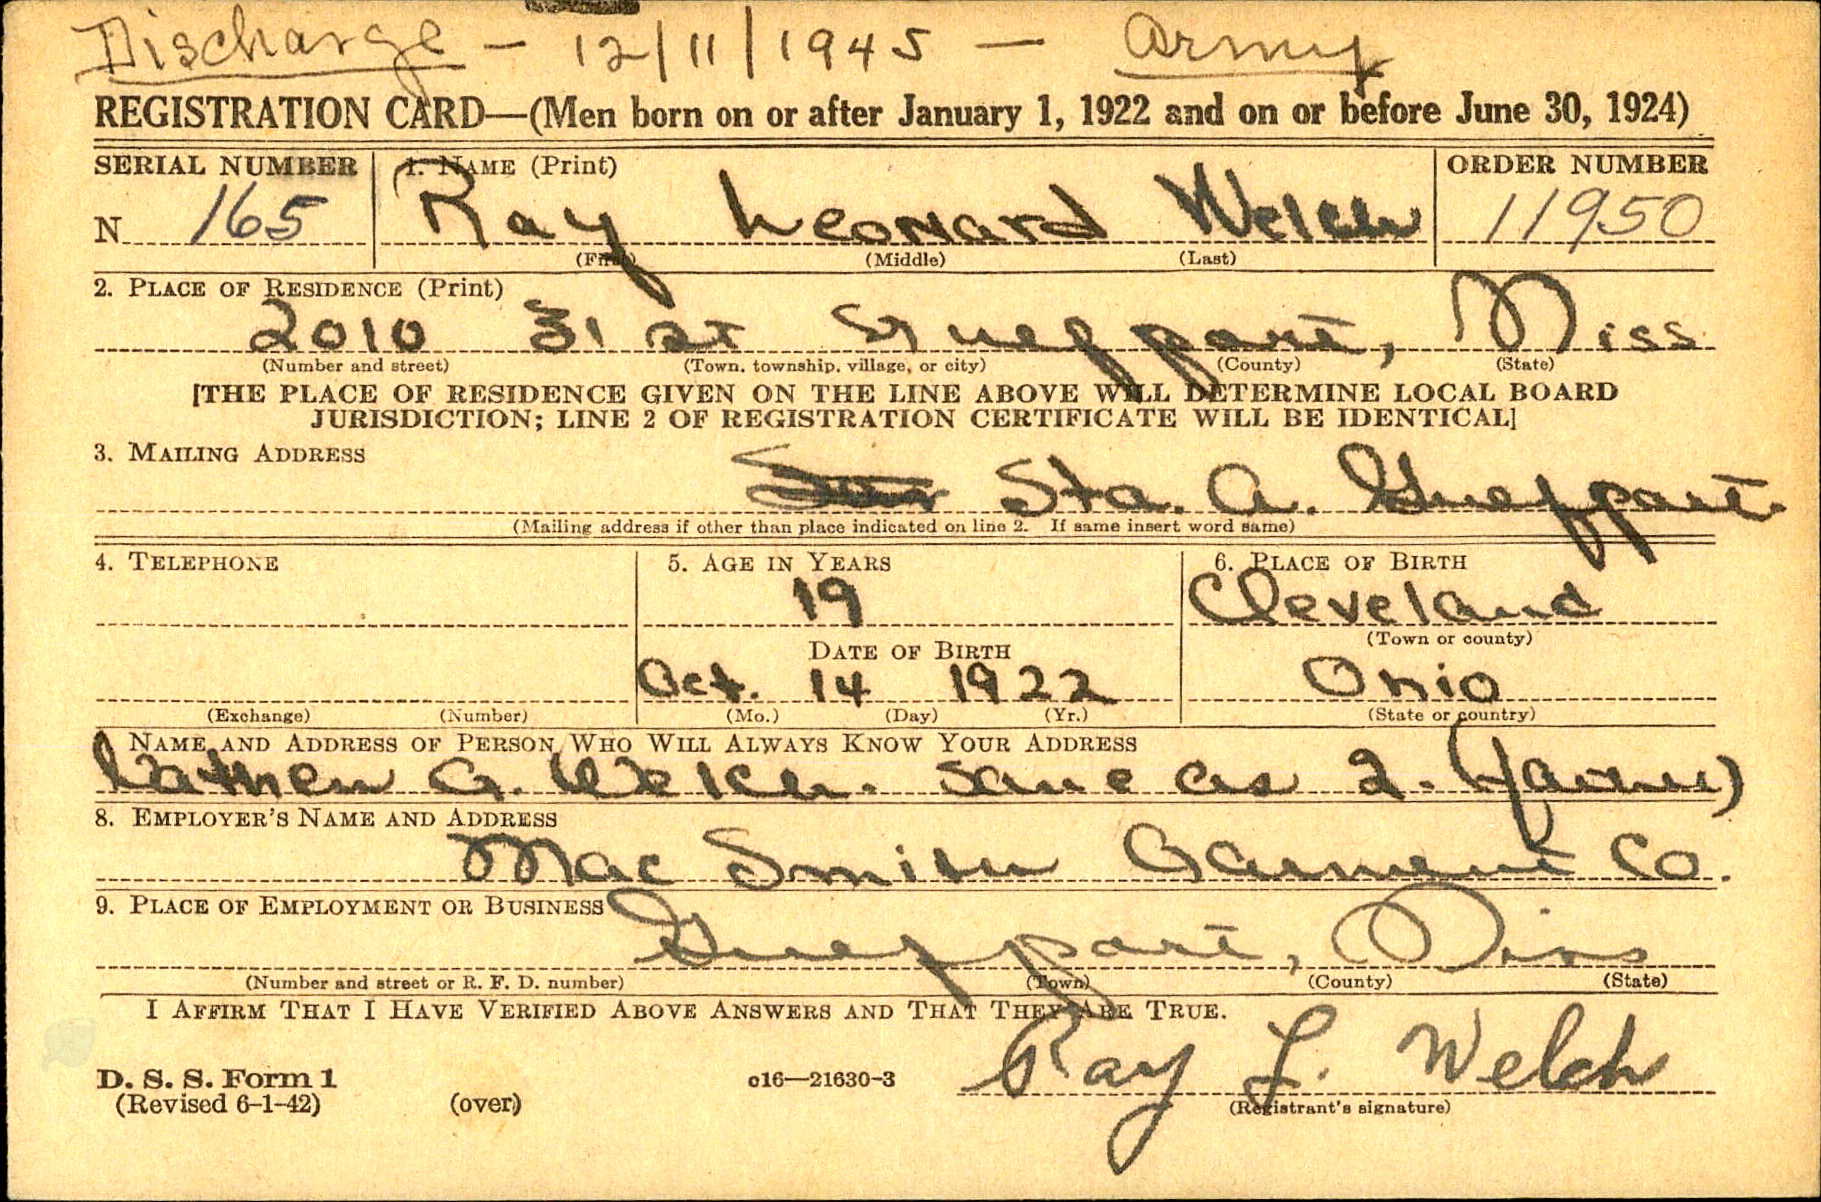 Discharge - 12/11/1945 - Army
REGISTRATION CARD—(Men born on or after January 1, 1922 and on or before June 30, 1924)
SERIAL NUMBER 1. NAME (Print) ORDER NUMBER
N 165 Ray Leonard Welch 11950
(First) (Middle) (Last)
2. PLACE OF RESIDENCE (Print)
2010 31 st Gulfport, Miss
(Number and street) (Town, township, village, or city) (County) (State)
[THE PLACE OF RESIDENCE GIVEN ON THE LINE ABOVE WILL DETERMINE LOCAL BOARD
JURISDICTION; LINE 2 OF REGISTRATION CERTIFICATE WILL BE IDENTICAL]
3. MAILING ADDRESS
Sta. A. Gulfport
(Mailing address if other than place indicated on line 2. If same insert word same)
4. TELEPHONE 5. AGE IN YEARS 6. PLACE OF BIRTH
19 Cleveland
(Town or county)
DATE OF BIRTH
Oct. 14 1922 Ohio
(Exchange) (Number) (Mo.) (Day) (Yr.) (State or country)
NAME AND ADDRESS OF PERSON WHO WILL ALWAYS KNOW YOUR ADDRESS
G. Welch. Same as 2.
8. EMPLOYER'S NAME AND ADDRESS
Mac Smith Garment Co.
9. PLACE OF EMPLOYMENT OR BUSINESS
Gulfport, Miss
(Number and street or R. F. D. number) (Town) (County) (State)
I AFFIRM THAT I HAVE VERIFIED ABOVE ANSWERS AND THAT THEY ARE TRUE.
Ray L. Welch
D. S. S. Form 1
(Revised 6-1-42) (over) c16—21630-3 (Registrant's signature)